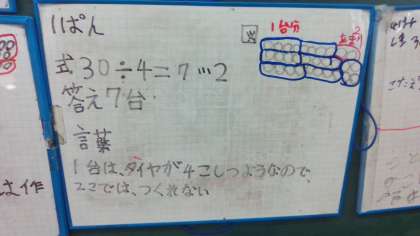 11ぱん
図
1台分
式 30÷4=7…2
答え7台
言葉
1台は、タイヤが4こひつようなので、
2こでは、つくれない
は作